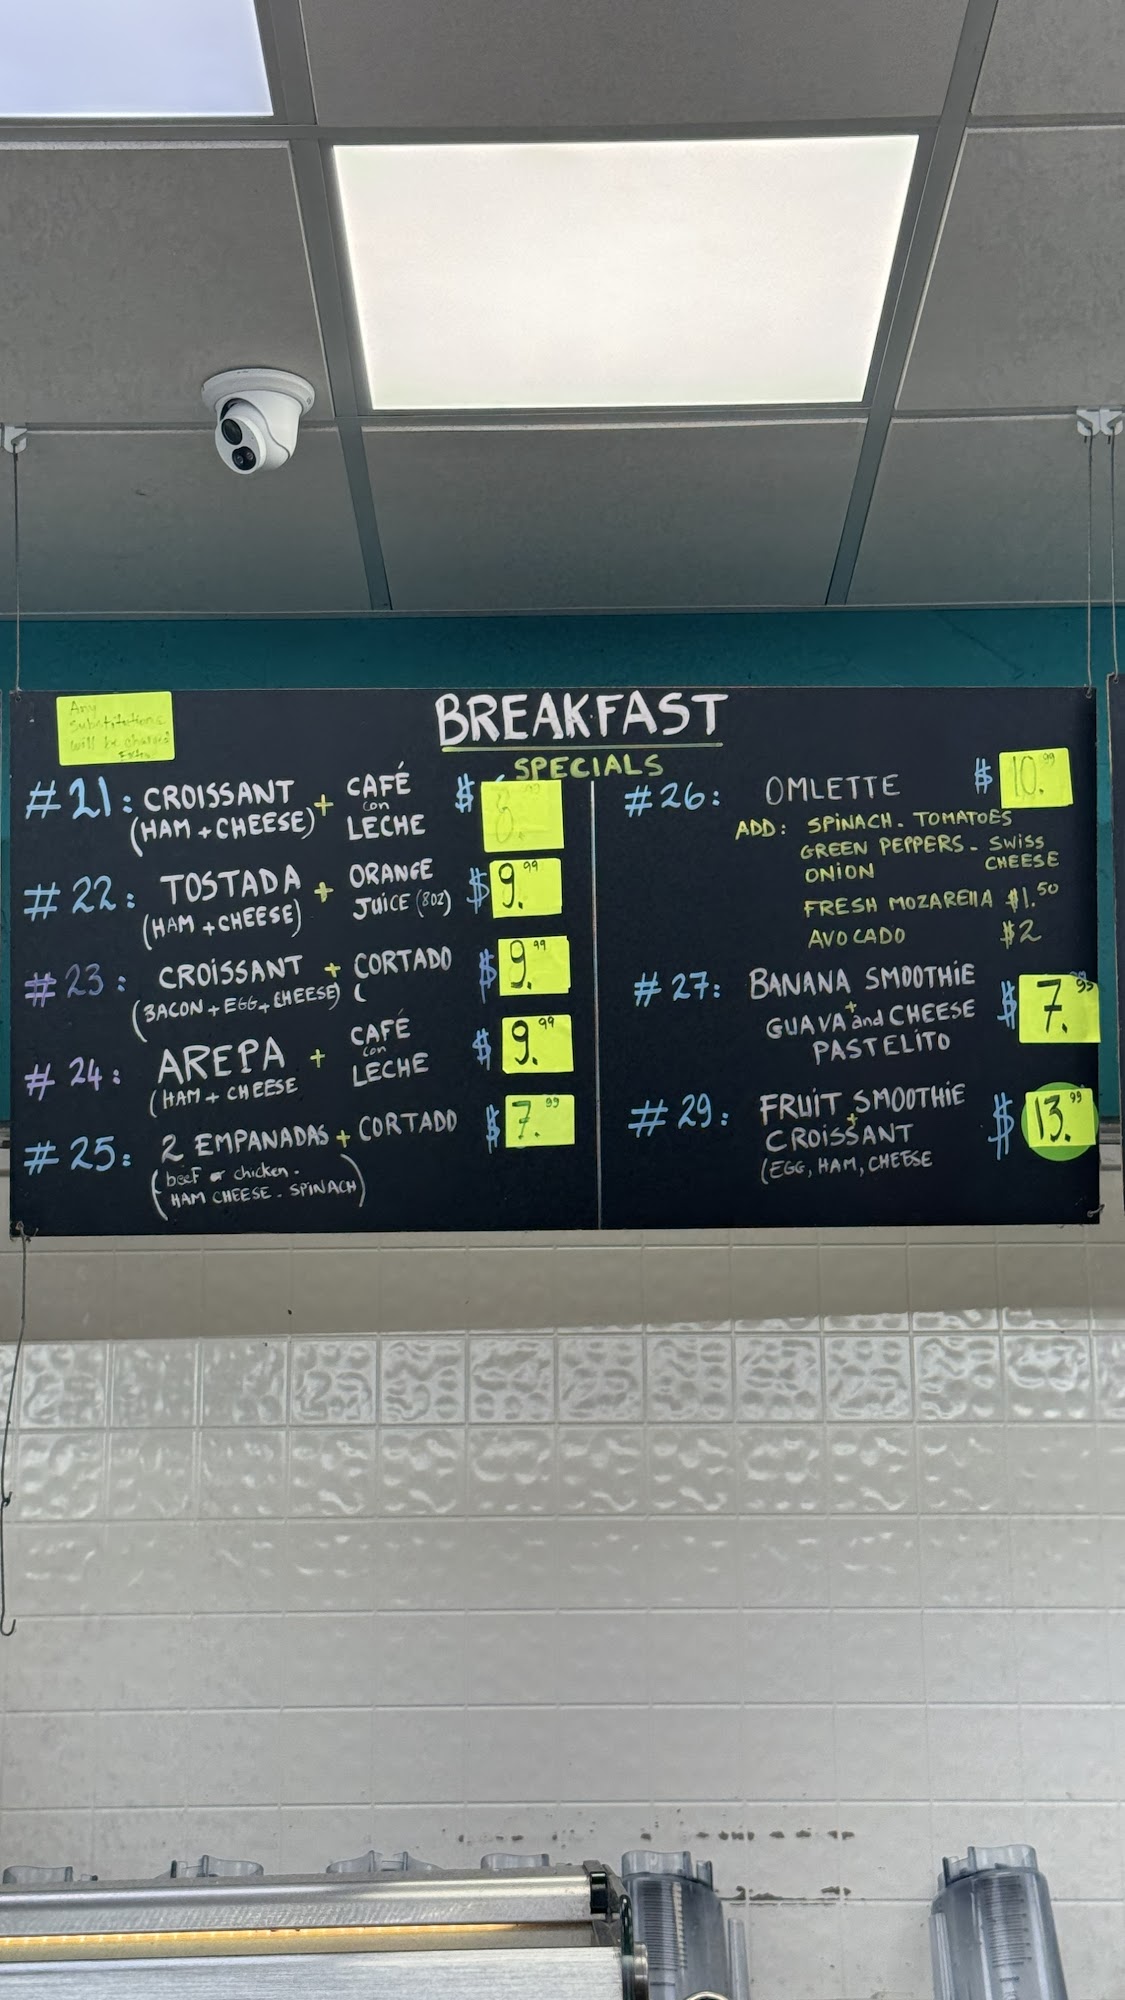 Any
substitutions
will be charged
Extra
BREAKFAST
SPECIALS
#21: CROISSANT + CAFÉ con LECHE $ 8.99
(HAM + CHEESE)
#22: TOSTADA + ORANGE JUICE (8OZ) $ 9.99
(HAM + CHEESE)
#23: CROISSANT + CORTADO $ 9.99
(BACON + EGG + CHEESE) (
#24: AREPA + CAFÉ con LECHE $ 9.99
(HAM + CHEESE
#25: 2 EMPANADAS + CORTADO $ 7.99
(beef or chicken.
HAM CHEESE - SPINACH)
#26: OMLETTE $ 10.99
ADD: SPINACH - TOMATOES
GREEN PEPPERS - SWISS
ONION CHEESE
FRESH MOZARElla $1.50
AVOCADO $2
#27: BANANA SMOOTHIE $ 7.99
+
GUAVA and CHEESE
PASTELITO
#29: FRUIT SMOOTHIE $ 13.99
+
CROISSANT
(EGG, HAM, CHEESE